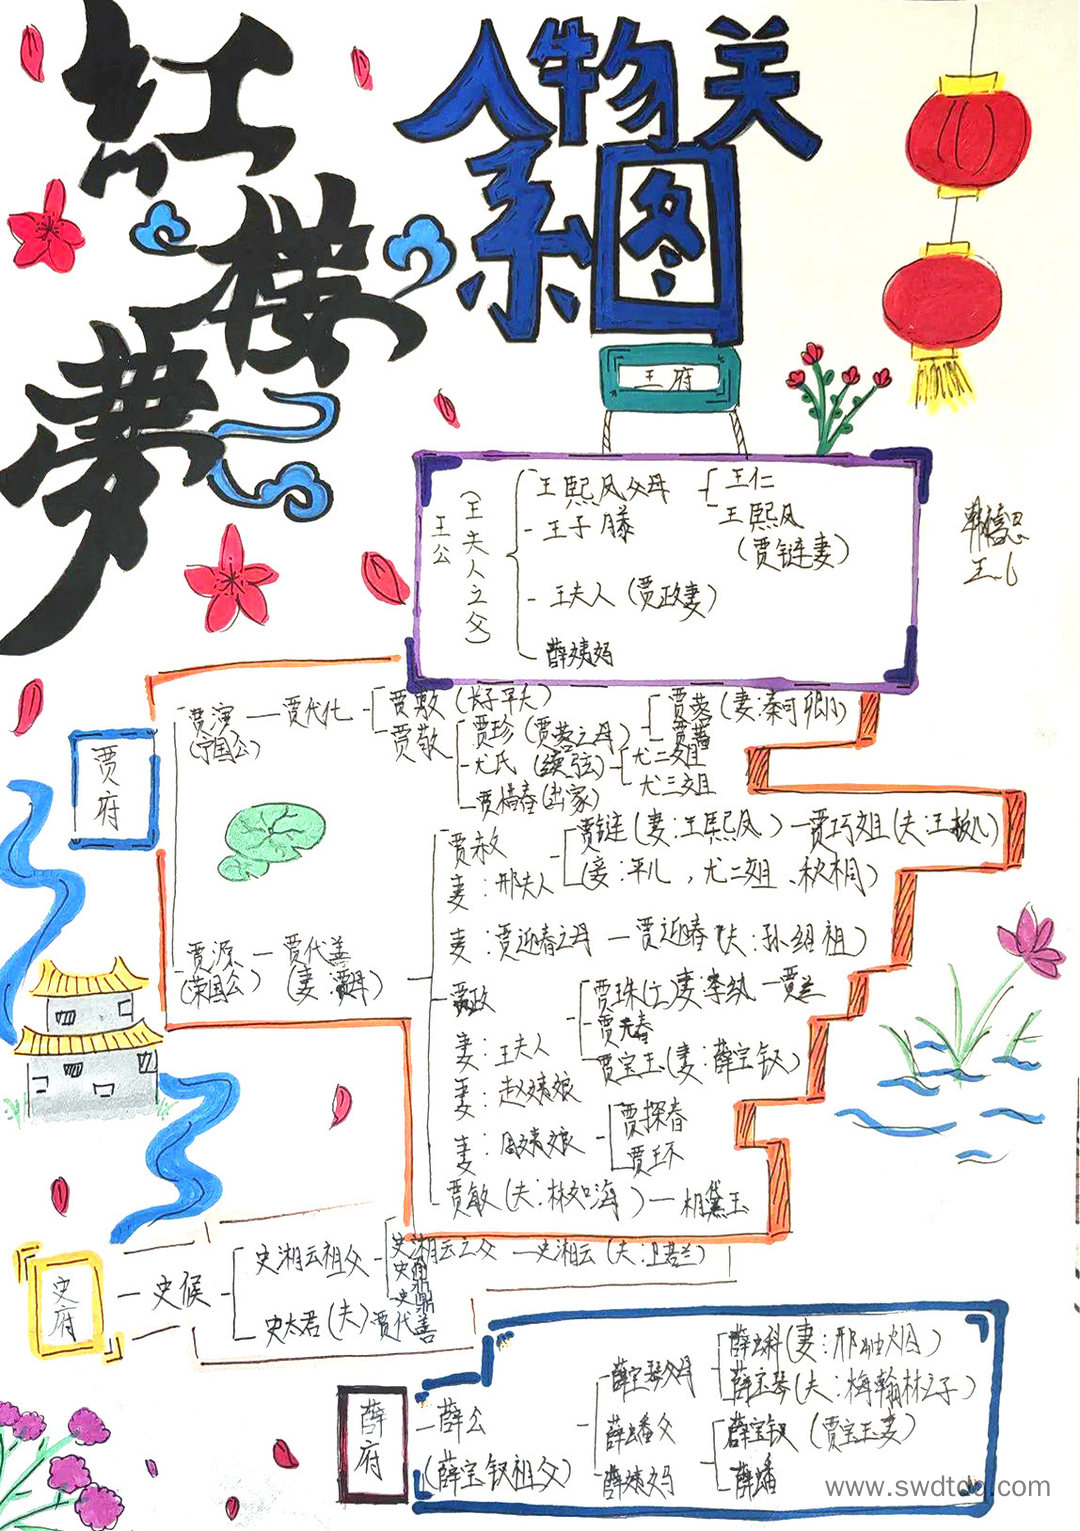 紅楼夢
人物关
系图
王府
王公
(王夫人之父)
王熙凤父母
王仁
王熙凤
(贾链妻)
王子腾
王夫人(贾政妻)
薛姨妈
贾府
贾演
(宁国公)
贾代化
贾敷(长子早夭)
贾敬
贾珍(贾蓉之母)
贾蓉(妻:秦可卿)
贾蔷
尤氏(续弦)
尤二姐
尤三姐
贾惜春(出家)
贾源
(荣国公)
贾代善
(妻:贾母)
贾赦
妻:邢夫人
贾链(妻:王熙凤)
贾巧姐(夫:王板儿)
(妾:平儿,尤二姐、秋桐)
妻:贾迎春之母
贾迎春(夫:孙绍祖)
贾政
妻:王夫人
妻:赵姨娘
妻:周姨娘
贾珠(亡)妻:李纨
贾兰
贾元春
贾宝玉(妻:薛宝钗)
贾探春
贾环
贾敏(夫:林如海)
林黛玉
史府
史候
史湘云祖父
史湘云之父
史湘云(夫:卫若兰)
史鼐
史鼎
史太君(夫)贾代善
薛府
薛公
(薛宝钗祖父)
薛宝琴父母
薛蝌(妻:邢岫烟)
薛宝琴(夫:梅翰林之子)
薛蟠父
薛宝钗(贾宝玉妻)
薛蟠
薛姨妈
www.swdtdq.com